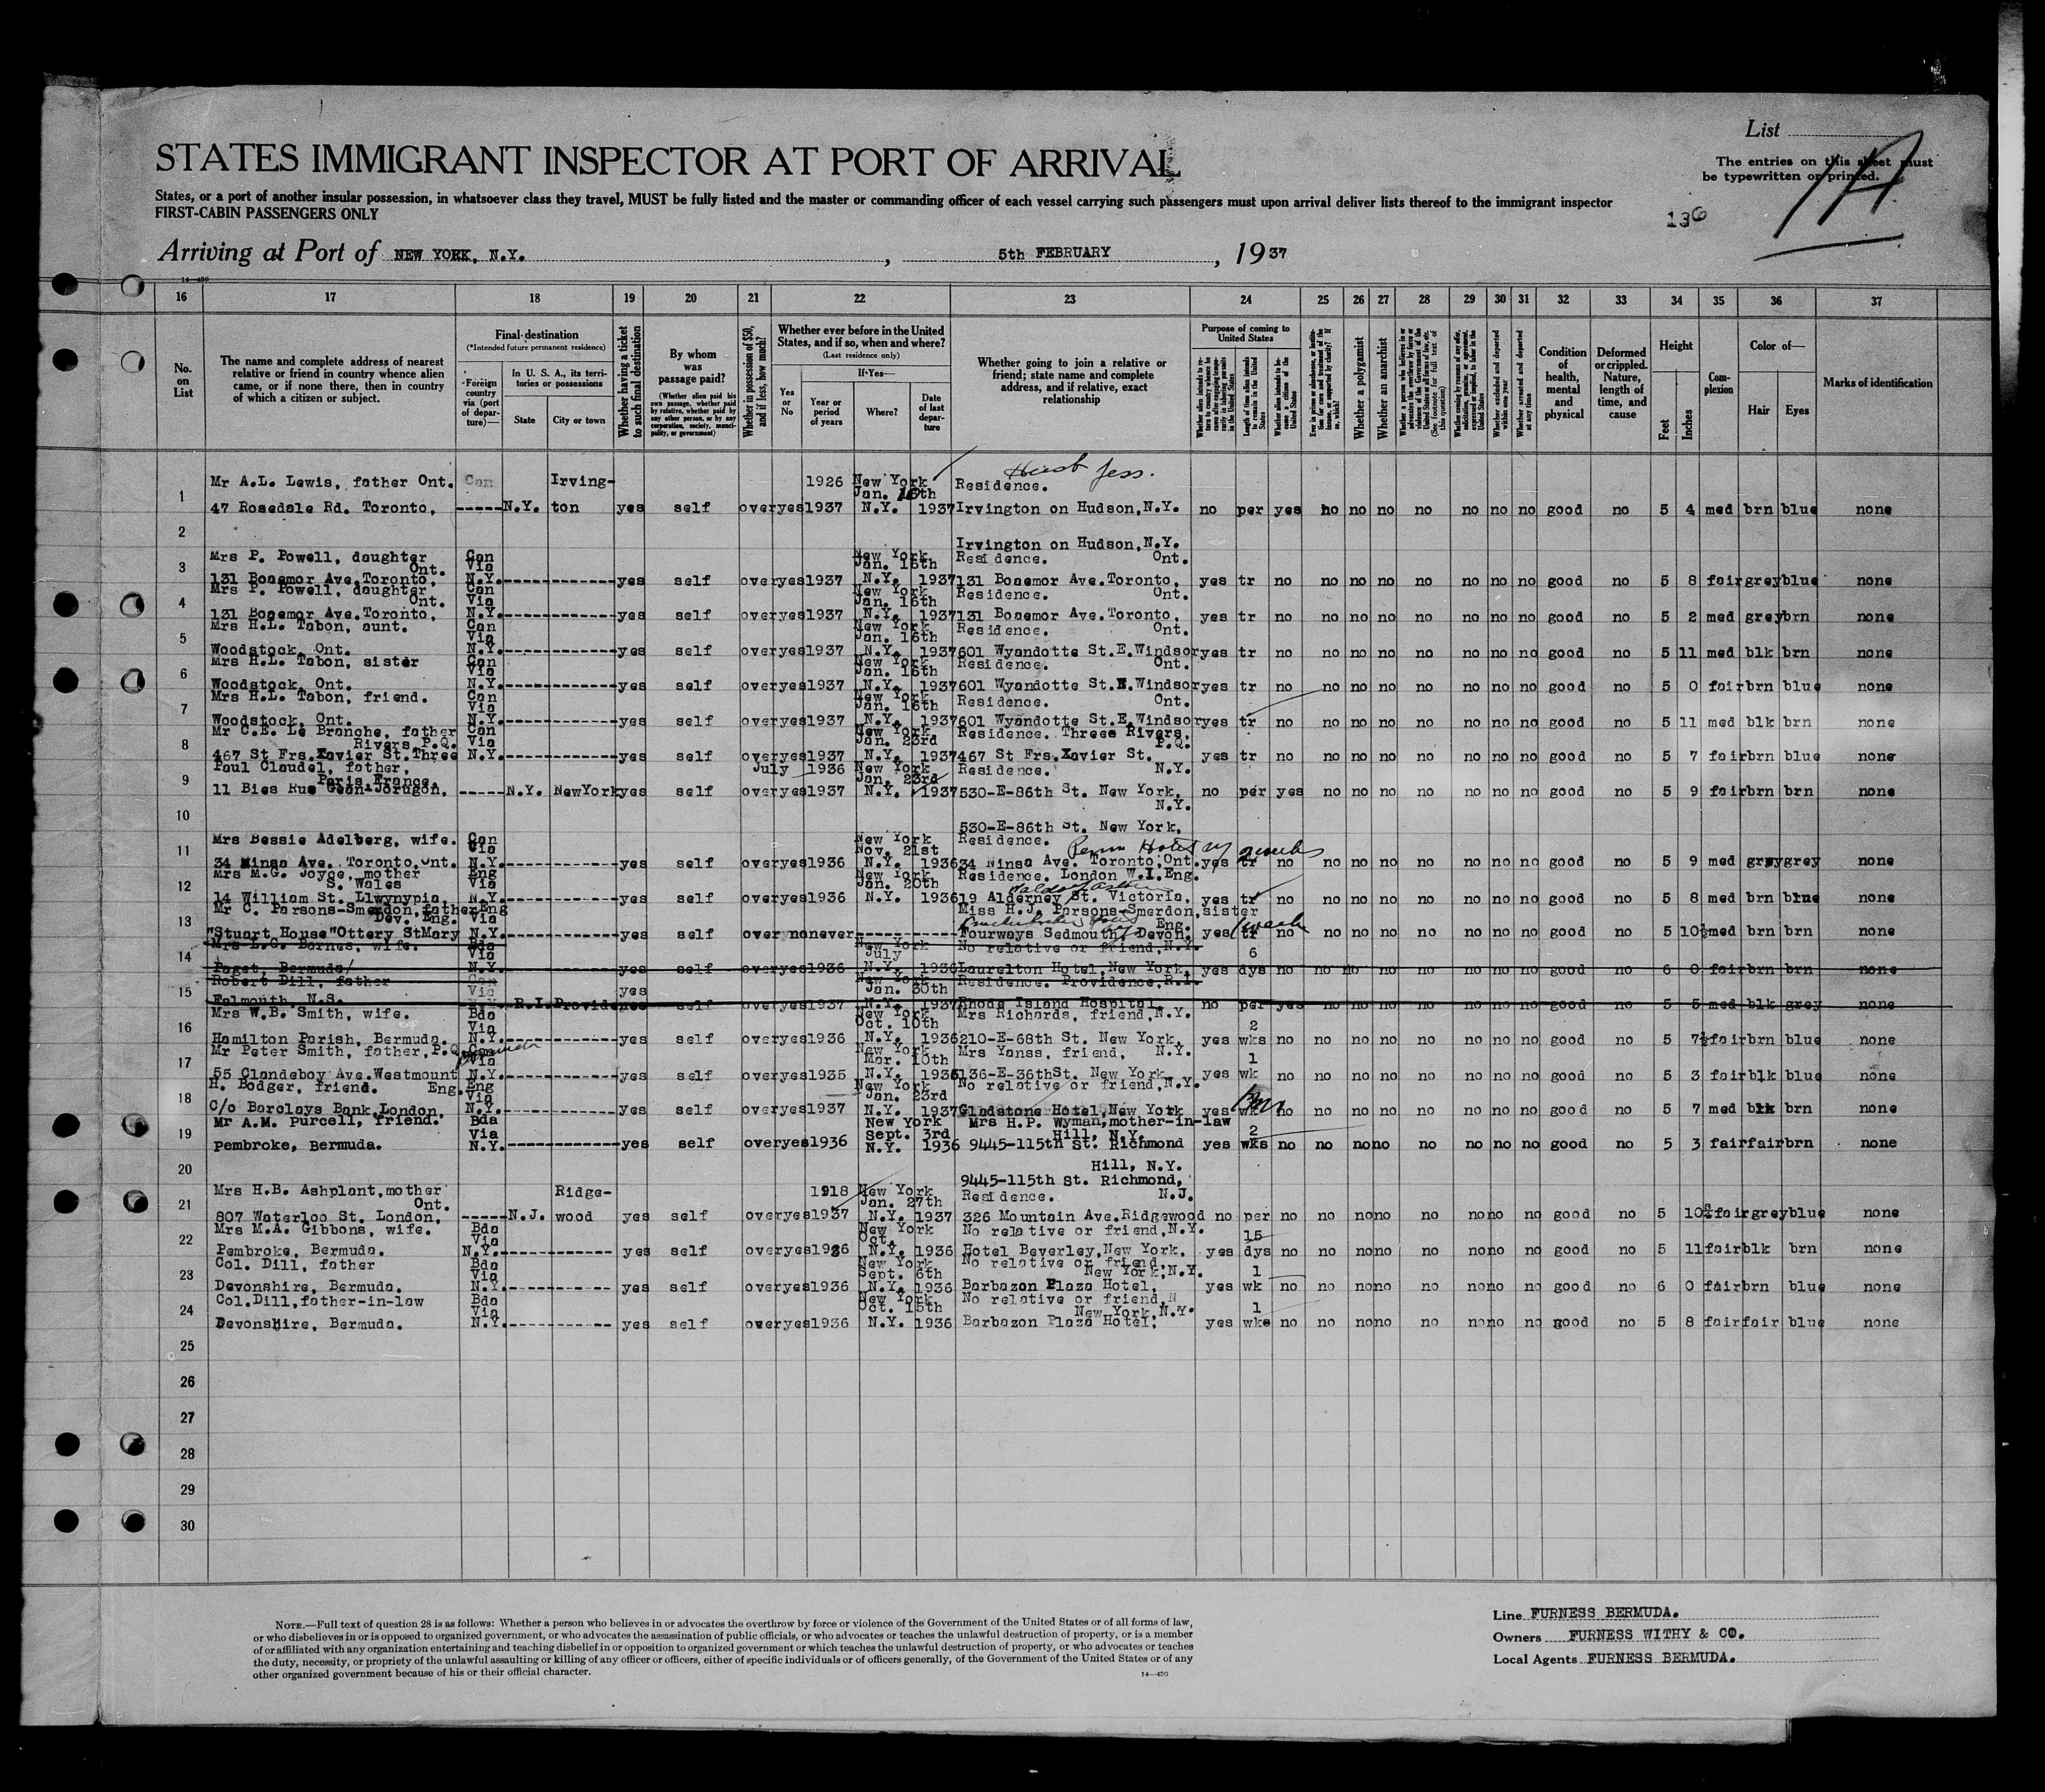 List
STATES IMMIGRANT INSPECTOR AT PORT OF ARRIVAL
The entries on this sheet must
be typewritten or printed.
1A
States, or a port of another insular possession, in whatsoever class they travel, MUST be fully listed and the master or commanding officer of each vessel carrying such passengers must upon arrival deliver lists thereof to the immigrant inspector
FIRST-CABIN PASSENGERS ONLY
136
Arriving at Port of NEW YORK, N.Y. , 5th FEBRUARY , 1937
16 17 18 19 20 21 22 23 24 25 26 27 28 29 30 31 32 33 34 35 36 37
No. on List
The name and complete address of nearest relative or friend in country whence alien came, or if none there, then in country of which a citizen or subject.
Final destination
(*Intended future permanent residence)
Foreign country via (port of departure)—
In U. S. A., its territories or possessions
State
City or town
Whether having a ticket to such final destination
By whom was passage paid?
(Whether alien paid his own passage, whether paid by relative, whether paid by any other person, or by any corporation, society, municipality, or government)
Whether in possession of $50, and if less, how much?
Whether ever before in the United States, and if so, when and where?
(Last residence only)
Yes or No
If Yes—
Year or period of years
Where?
Date of last departure
Whether going to join a relative or friend; state name and complete address, and if relative, exact relationship
Purpose of coming to United States
Whether a polygamist
Whether an anarchist
Condition of health, mental and physical
Deformed or crippled. Nature, length of time, and cause
Height
Feet
Inches
Complexion
Color of—
Hair
Eyes
Marks of identification
1 Mr A.L. Lewis, father Ont. Can Irving- 1926 New York Jan. 16th Residence.
47 Rosedale Rd. Toronto, -----N.Y. ton yes self over yes 1937 N.Y. 1937 Irvington on Hudson, N.Y. no per yes no no no no no no no good no 5 4 med brn blue none
2 Irvington on Hudson, N.Y.
3 Mrs P. Powell, daughter Ont. Can Via New York Jan. 16th Residence. Ont.
131 Bonemor Ave. Toronto, N.Y. yes self over yes 1937 N.Y. 1937 131 Bonemor Ave. Toronto, yes tr no no no no no no no no good no 5 8 fair grey blue none
4 Mrs P. Powell, daughter Ont. Can Via New York Jan. 16th Residence. Ont.
131 Bonemor Ave. Toronto, N.Y. yes self over yes 1937 N.Y. 1937 131 Bonemor Ave. Toronto, yes tr no no no no no no no no good no 5 2 med grey brn none
5 Mrs H.L. Tabon, aunt. Can Via New York Jan. 16th Residence. Ont.
Woodstock, Ont. N.Y. yes self over yes 1937 N.Y. 1937 601 Wyandotte St. E. Windsor yes tr no no no no no no no no good no 5 11 med blk brn none
6 Mrs H.L. Tabon, sister Can Via New York Jan. 16th Residence. Ont.
Woodstock, Ont. N.Y. yes self over yes 1937 N.Y. 1937 601 Wyandotte St. E. Windsor yes tr no no no no no no no no good no 5 0 fair brn blue none
7 Mrs H.L. Tabon, friend. Can Via New York Jan. 16th Residence. Ont.
Woodstock, Ont. N.Y. yes self over yes 1937 N.Y. 1937 601 Wyandotte St. E. Windsor yes tr no no no no no no no no good no 5 11 med blk brn none
8 Mr C.E. Le Branche, father Rivers, P.Q. Can Via New York Jan. 23rd Residence. Threee Rivers, P.Q.
467 St Frs. Xavier St. Three N.Y. yes self over yes 1937 N.Y. 1937 467 St Frs. Xavier St. yes tr no no no no no no no no good no 5 7 fair brn blue none
9 Paul Claudel, father, Paris, France. July 1936 New York Jan. 23rd Residence. N.Y.
11 Bies Rue -----N.Y. New York yes self over yes 1937 N.Y. 1937 530-E-86th St. New York, no per yes no no no no no no no good no 5 9 fair brn brn none
10 N.Y.
530-E-86th St. New York,
11 Mrs Bessie Adelberg, wife. Can Via New York Nov. 21st Residence.
34 Ninsa Ave. Toronto, Ont. N.Y. yes self over yes 1936 N.Y. 1936 34 Ninsa Ave. Toronto, Ont. yes tr no no no no no no no no good no 5 9 med grey grey none
12 Mrs M.G. Joyce, mother S. Wales Eng Via New York Jan. 20th Residence. London W.I. Eng.
14 William St. Llwynypia, N.Y. yes self over yes 1936 N.Y. 1936 19 Alderney St. Victoria, yes tr no no no no no no no no good no 5 8 med brn blue none
13 Mr C. Parsons-Smerdon, father Dev. Eng. Eng Via Miss H.J. Parsons-Smerdon, sister Eng.
"Stuart House" Ottery StMary N.Y. yes self over no never Fourways Sedmouth, Devon. yes tr no no no no no no no no good no 5 10½ med brn brn none
14 Mrs L.G. Barnes, wife. Bda Via New York July No relative or friend, N.Y. 6
Paget, Bermuda/ N.Y. yes self over yes 1936 N.Y. 1936 Laurelton Hotel, New York, yes dys no no no no no no no no good no 6 0 fair brn brn none
15 Robert Dill, father Can Via yes New York Jan. 30th Residence. Providence, R.I.
Falmouth, N.S. R.I. Providence self over yes 1937 N.Y. 1937 Rhode Island Hospital, no per yes no no no no no no no good no 5 5 med blk grey none
16 Mrs W.B. Smith, wife. Bda Via New York Oct. 10th Mrs Richards, friend, N.Y. 2
Hamilton Parish, Bermuda. N.Y. yes self over yes 1936 N.Y. 1936 210-E-68th St. New York, yes wks no no no no no no no no good no 5 7½ fair brn blue none
17 Mr Peter Smith, father, P.Q. Can Via New York Mar. 10th Mrs Yanss, friend, N.Y. 1
55 Clandeboy Ave. Westmount N.Y. yes self over yes 1935 N.Y. 136-E-36th St. New York yes wk no no no no no no no no good no 5 3 fair blk blue none
18 H. Bodger, friend. Eng. Eng Via New York Jan. 23rd No relative or friend, N.Y.
C/o Barclays Bank, London. N.Y. yes self over yes 1937 N.Y. 1937 Gladstone Hotel, New York yes wk no no no no no no no no good no 5 7 med blk brn none
19 Mr A.M. Purcell, friend. Bda Via New York Sept. 3rd Mrs H.P. Wyman, mother-in-law Hill, N.Y. 2
Pembroke, Bermuda. N.Y. yes self over yes 1936 N.Y. 1936 9445-115th St. Richmond yes wks no no no no no no no no good no 5 3 fair fair brn none
20 Hill, N.Y.
9445-115th St. Richmond,
21 Mrs H.B. Ashplant, mother Ont. Ridge- 1918 New York Jan. 27th Residence. N.J.
807 Waterloo St. London, -----N.J. wood yes self over yes 1937 N.Y. 1937 326 Mountain Ave. Ridgewood no per no no no no no no no no good no 5 10½ fair grey blue none
22 Mrs M.A. Gibbons, wife. Bda Via New York Oct. No relative or friend, N.Y. 15
Pembroke, Bermuda. N.Y. yes self over yes 1936 N.Y. 1936 Hotel Beverley, New York, yes dys no no no no no no no no good no 5 11 fair blk brn none
23 Col. Dill, father Bda Via New York Sept. 6th No relative or friend, New York, N.Y. 1
Devonshire, Bermuda. N.Y. yes self over yes 1936 N.Y. 1936 Barbazon Plaza Hotel, yes wk no no no no no no no no good no 6 0 fair brn blue none
24 Col. Dill, father-in-law Bda Via New York Oct. 15th No relative or friend, N New York, N.Y. 1
Devonshire, Bermuda. N.Y. yes self over yes 1936 N.Y. 1936 Barbazon Plaza Hotel, yes wke no no no no no no no no good no 5 8 fair fair blue none
25
26
27
28
29
30
NOTE.—Full text of question 28 is as follows: Whether a person who believes in or advocates the overthrow by force or violence of the Government of the United States or of all forms of law,
or who disbelieves in or is opposed to organized government, or who advocates the assassination of public officials, or who advocates or teaches the unlawful destruction of property, or is a member
of or affiliated with any organization entertaining and teaching disbelief in or opposition to organized government or which teaches the unlawful destruction of property, or who advocates or teaches
the duty, necessity, or propriety of the unlawful assaulting or killing of any officer or officers, either of specific individuals or of officers generally, of the Government of the United States or of any
other organized government because of his or their official character.
14—430
Line FURNESS BERMUDA.
Owners FURNESS WITHY & CO.
Local Agents FURNESS BERMUDA.